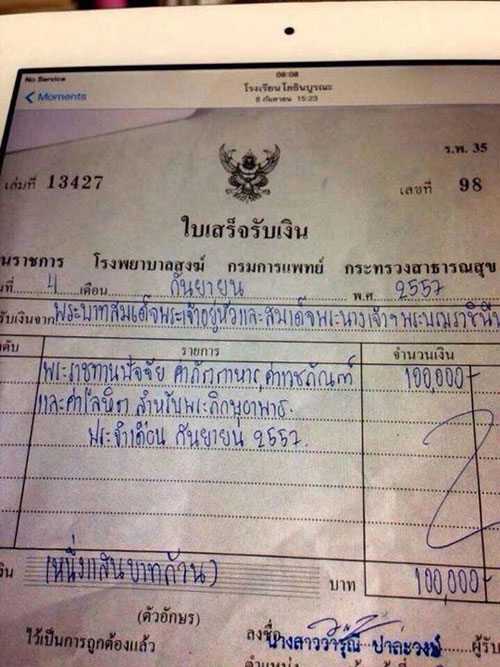 No Service
08:08
Moments
โรงเรียนโยธินบูรณะ
8 กันยายน 15:23
ร.พ. 35
เล่มที่ 13427
เลขที่ 98
ใบเสร็จรับเงิน
นราชการ โรงพยาบาลสงฆ์ กรมการแพทย์ กระทรวงสาธารณสุข
นที่ 4 เดือน กันยายน พ.ศ. 2557
รับเงินจาก พระบาทสมเด็จพระเจ้าอยู่หัวและสมเด็จพระนางเจ้าฯพระบรมราชินีน
ดับ รายการ จำนวนเงิน
พระราชทานปัจจัย ค่าภัตตาหาร, ค่าเวชภัณฑ์ 100,000-
และค่าโลหิต สำหรับพระภิกษุอาพาธ
ประจำเดือน กันยายน 2557.
งิน (หนึ่งแสนบาทถ้วน) บาท 100,000-
(ตัวอักษร)
ไว้เป็นการถูกต้องแล้ว
ลงชื่อ ผู้รับ
นางสาววารุณี ปาละวงษ์
ตำแหน่ง